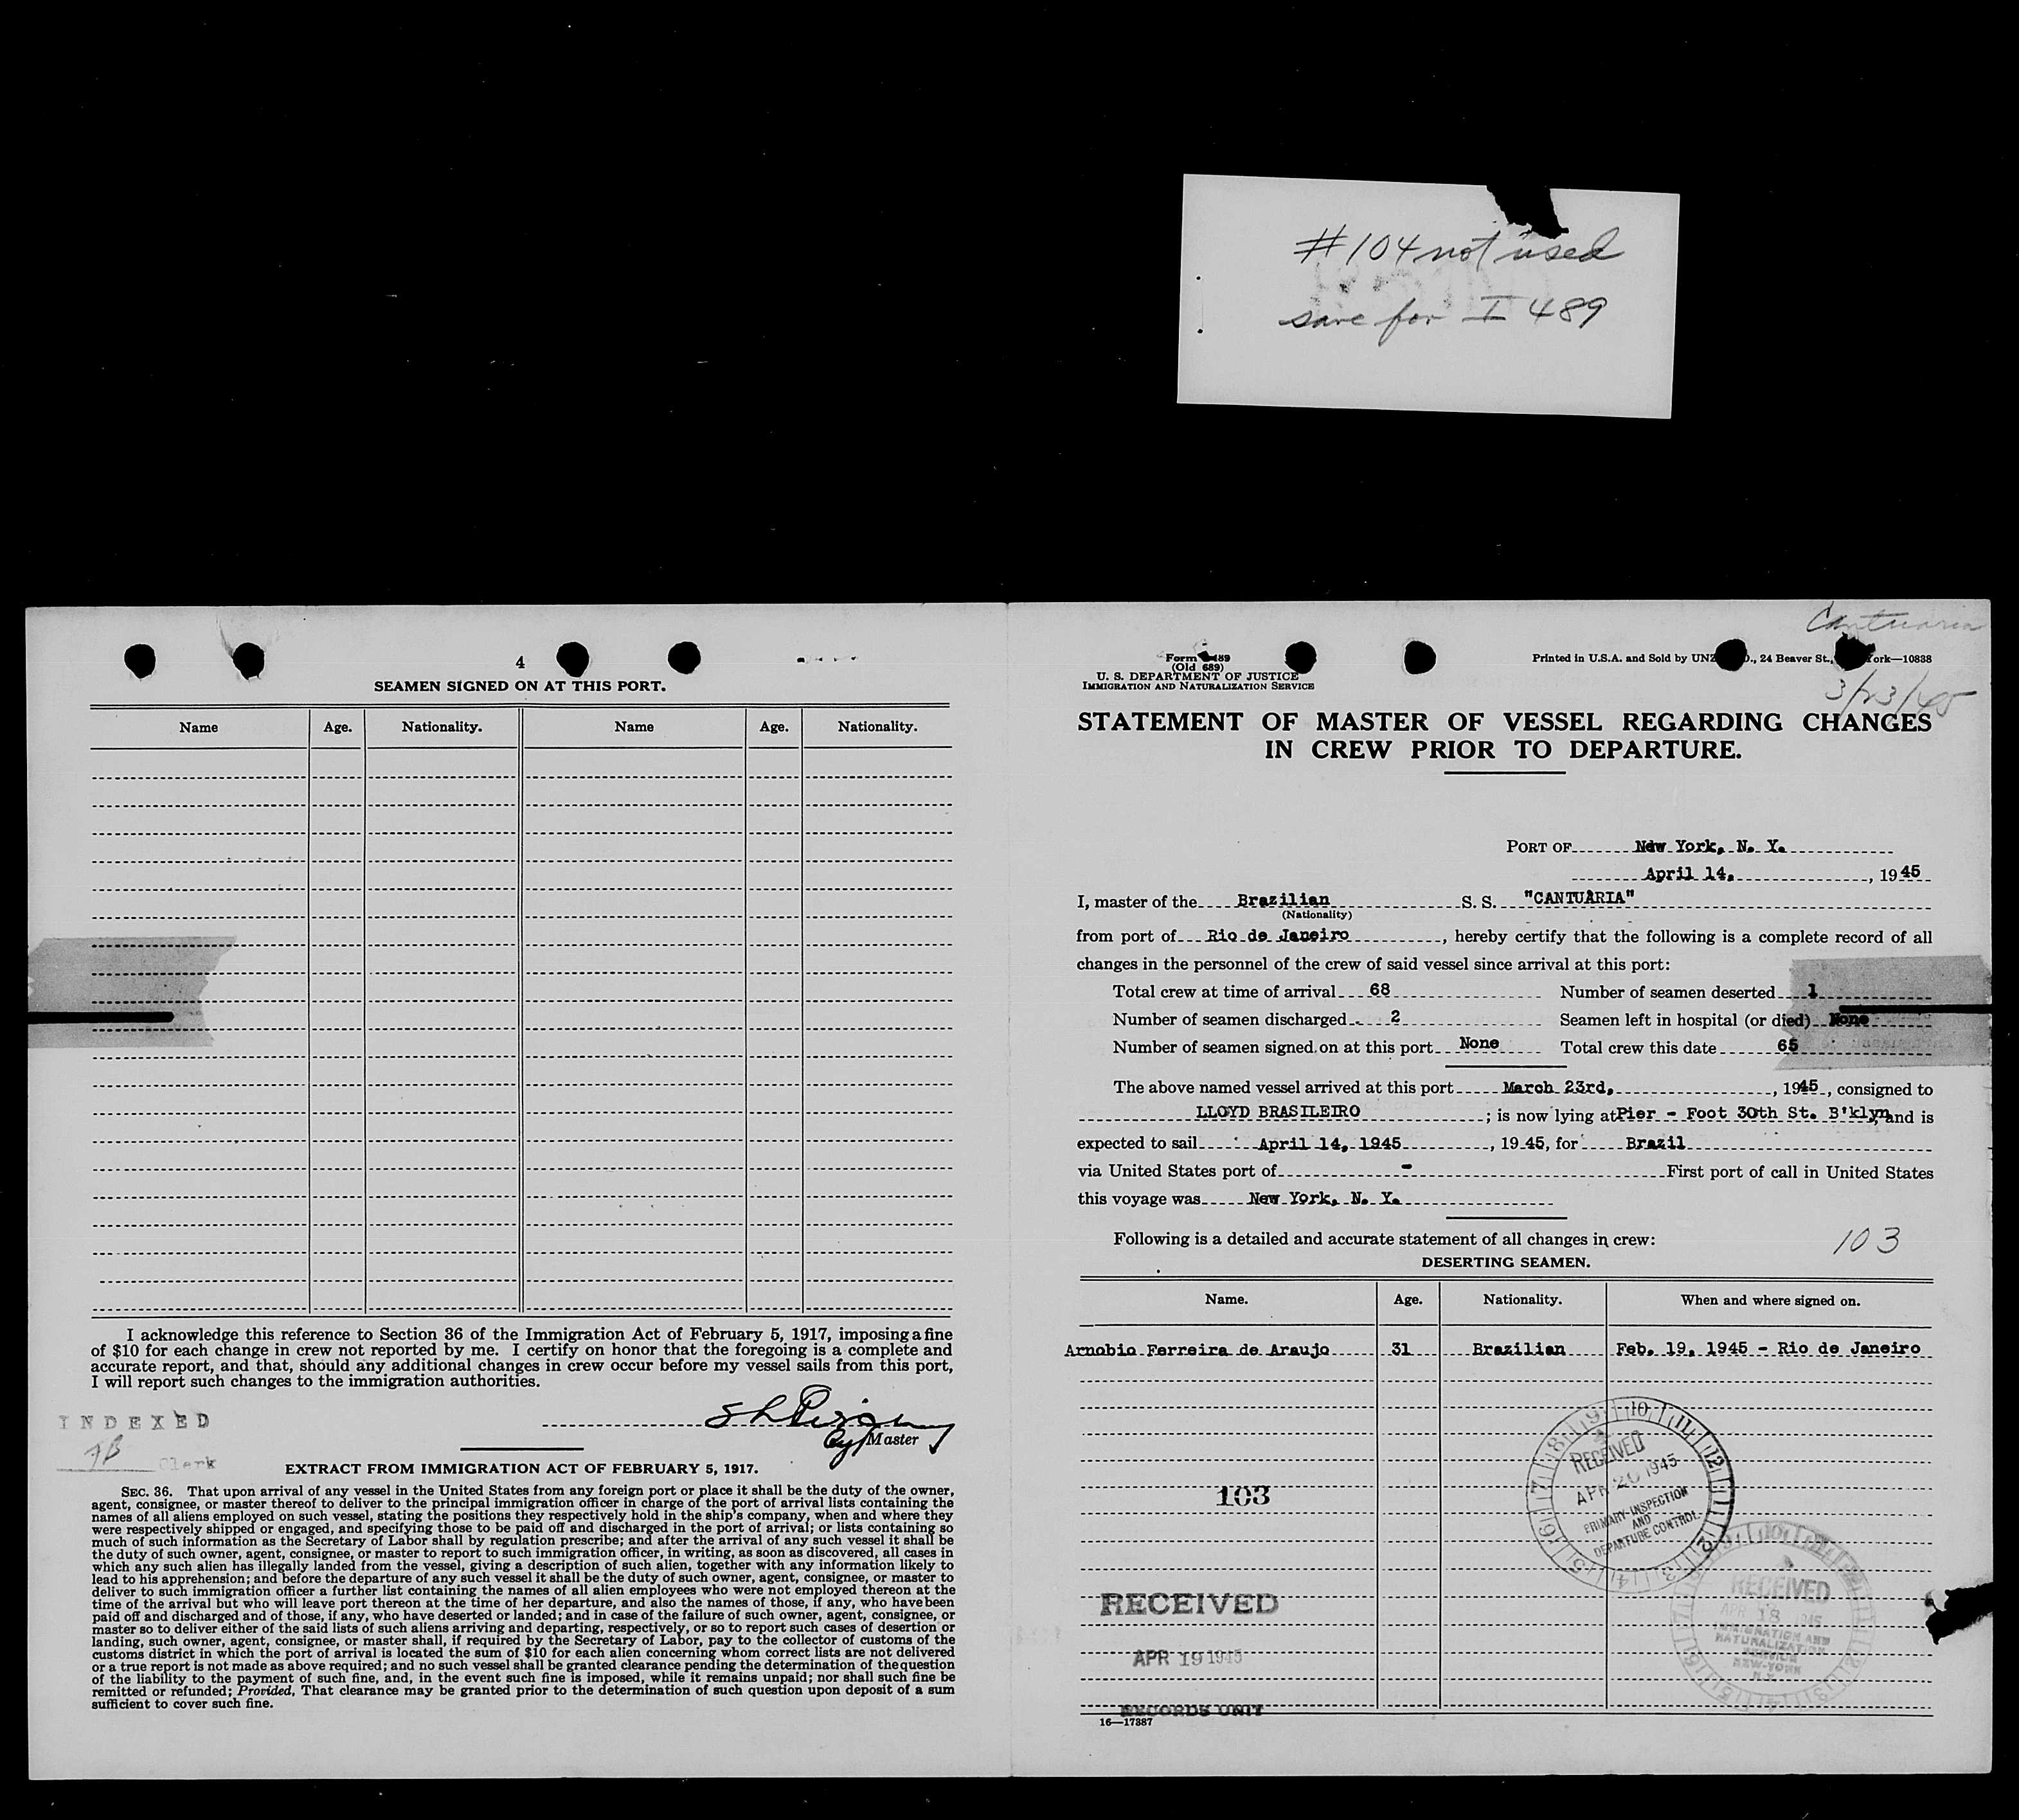 #104 not used
save for I 489
4
SEAMEN SIGNED ON AT THIS PORT.
Name Age. Nationality. Name Age. Nationality.
I acknowledge this reference to Section 36 of the Immigration Act of February 5, 1917, imposing a fine
of $10 for each change in crew not reported by me. I certify on honor that the foregoing is a complete and
accurate report, and that, should any additional changes in crew occur before my vessel sails from this port,
I will report such changes to the immigration authorities.
INDEXED
Clerk
Master
EXTRACT FROM IMMIGRATION ACT OF FEBRUARY 5, 1917.
SEC. 36. That upon arrival of any vessel in the United States from any foreign port or place it shall be the duty of the owner,
agent, consignee, or master thereof to deliver to the principal immigration officer in charge of the port of arrival lists containing the
names of all aliens employed on such vessel, stating the positions they respectively hold in the ship's company, when and where they
were respectively shipped or engaged, and specifying those to be paid off and discharged in the port of arrival; or lists containing so
much of such information as the Secretary of Labor shall by regulation prescribe; and after the arrival of any such vessel it shall be
the duty of such owner, agent, consignee, or master to report to such immigration officer, in writing, as soon as discovered, all cases in
which any such alien has illegally landed from the vessel, giving a description of such alien, together with any information likely to
lead to his apprehension; and before the departure of any such vessel it shall be the duty of such owner, agent, consignee, or master to
deliver to such immigration officer a further list containing the names of all alien employees who were not employed thereon at the
time of the arrival but who will leave port thereon at the time of her departure, and also the names of those, if any, who have been
paid off and discharged and of those, if any, who have deserted or landed; and in case of the failure of such owner, agent, consignee, or
master so to deliver either of the said lists of such aliens arriving and departing, respectively, or so to report such cases of desertion or
landing, such owner, agent, consignee, or master shall, if required by the Secretary of Labor, pay to the collector of customs of the
customs district in which the port of arrival is located the sum of $10 for each alien concerning whom correct lists are not delivered
or a true report is not made as above required; and no such vessel shall be granted clearance pending the determination of the question
of the liability to the payment of such fine, and, in the event such fine is imposed, while it remains unpaid; nor shall such fine be
remitted or refunded; Provided, That clearance may be granted prior to the determination of such question upon deposit of a sum
sufficient to cover such fine.
Cantuaria
Form 489
(Old 689)
U. S. DEPARTMENT OF JUSTICE
IMMIGRATION AND NATURALIZATION SERVICE
Printed in U.S.A. and Sold by UNZ , 24 Beaver St., ork—10838
3/23/45
STATEMENT OF MASTER OF VESSEL REGARDING CHANGES
IN CREW PRIOR TO DEPARTURE.
PORT OF New York, N. Y.
April 14, , 1945
I, master of the Brazilian S. S. "CANTUARIA"
(Nationality)
from port of Rio de Janeiro , hereby certify that the following is a complete record of all
changes in the personnel of the crew of said vessel since arrival at this port:
Total crew at time of arrival 68 Number of seamen deserted 1
Number of seamen discharged 2 Seamen left in hospital (or died) None
Number of seamen signed on at this port None Total crew this date 65
The above named vessel arrived at this port March 23rd, , 1945, consigned to
LLOYD BRASILEIRO ; is now lying at Pier - Foot 30th St. B'klyn, and is
expected to sail April 14, 1945 , 1945, for Brazil
via United States port of - First port of call in United States
this voyage was New York, N. Y.
Following is a detailed and accurate statement of all changes in crew: 103
DESERTING SEAMEN.
Name. Age. Nationality. When and where signed on.
Arnobio Ferreira de Araujo 31 Brazilian Feb. 19, 1945 - Rio de Janeiro
103
RECEIVED
APR 20 1945
PRIMARY INSPECTION
AND
DEPARTURE CONTROL
RECEIVED
APR 18 1945
IMMIGRATION AND
NATURALIZATION
SERVICE
NEW-YORK
N.Y.
RECEIVED
APR 19 1945
RECORDS UNIT
16—17387